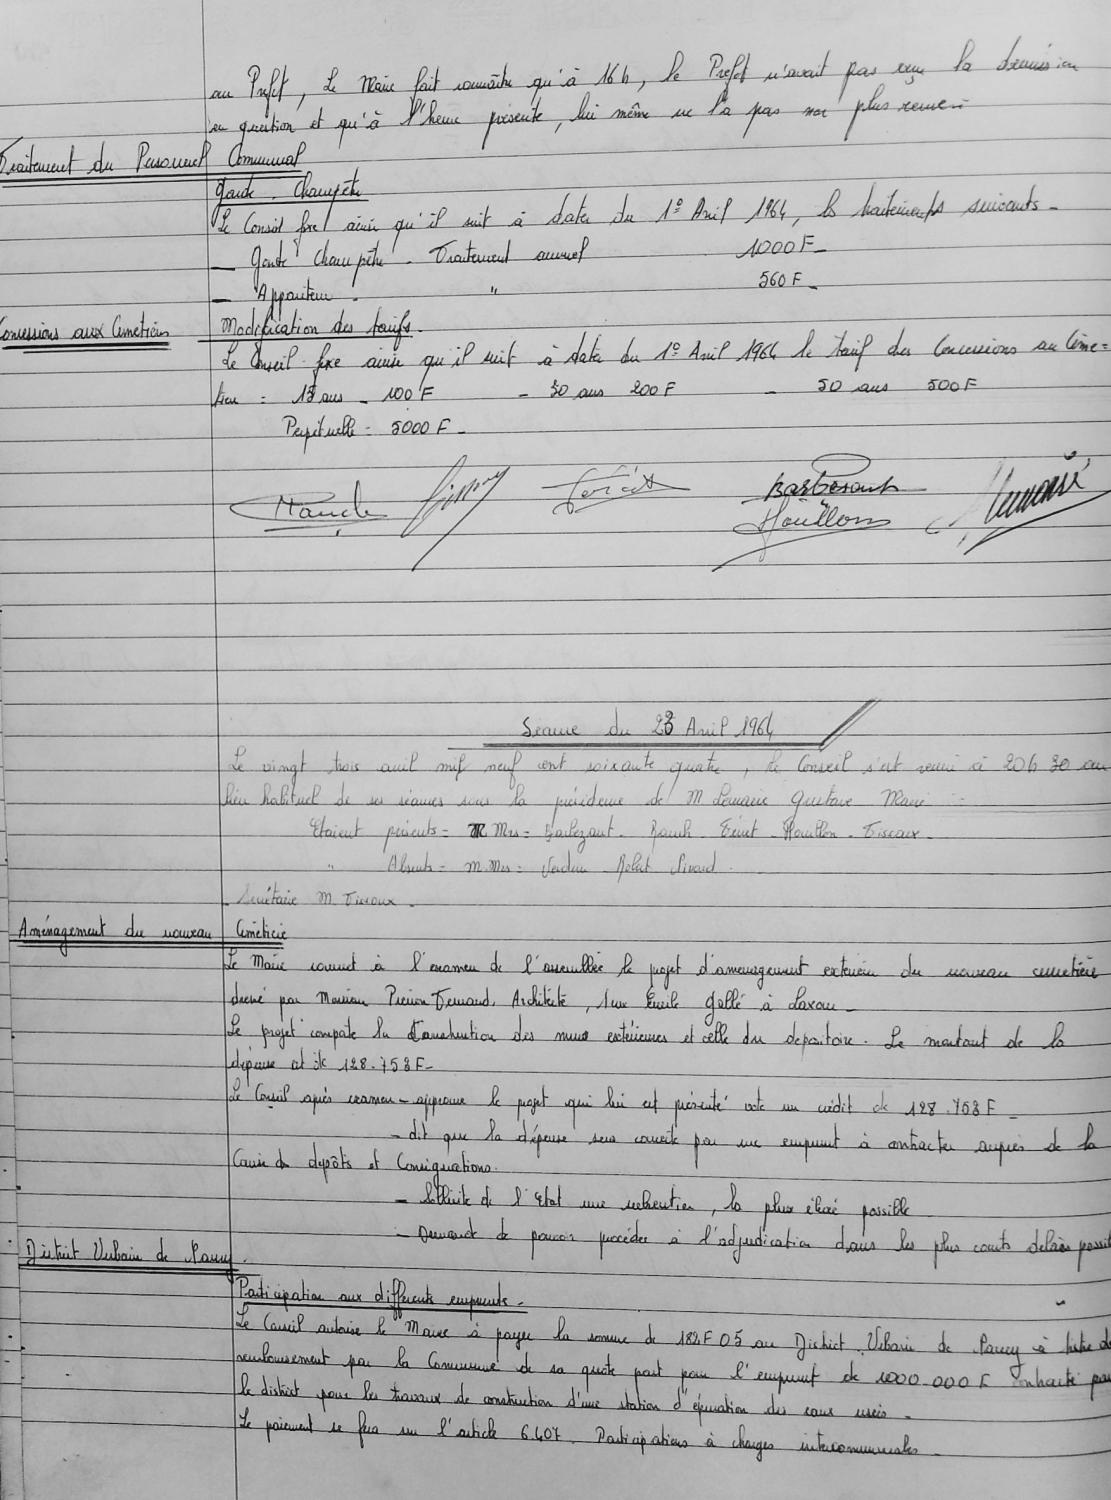 au Préfet, Le Maire fait connaître qu'à 16 h, le Préfet n'avait pas reçu la démission
en question et qu'à l'heure présente, lui même ne l'a pas non plus
Traitement du Personnel Communal
Garde-Champêtre
Le Conseil fixe ainsi qu'il suit à dater du 1º Avril 1964, les traitements suivants -
- Garde Champêtre - Traitement annuel 1000 F -
- Appariteur - " 560 F -
Concessions aux Cimetières
Modification des tarifs -
Le Conseil fixe ainsi qu'il suit à dater du 1º Avril 1964 le tarif des Concessions au Cime=
tière = 15 ans - 100 F - 30 ans 200 F - 50 ans 500 F
Perpétuelle = 5000 F -
Houillon
Séance du 23 Avril 1964
Le vingt trois avril mil neuf cent soixante quatre, le Conseil s'est réuni à 20 h 30 au
lieu habituel de ses séances sous la présidence de M Lemaire Gustave Maire
Etaient présents = M Mrs = Houillon -
" Absents = M.Mrs =
Secrétaire M.
Aménagement du nouveau Cimetière
Le Maire soumet à l'examen de l'assemblée le projet d'aménagement extérieur du nouveau cimetière
dressé par Monsieur Fernand, Architecte, 1 rue Emile Gallé à Laxou -
Le projet compote la Construction des murs extérieurs et celle du depositoire. Le montant de la
dépense est de 128.753 F -
Le Conseil après examen - approuve le projet qui lui est présenté vote un crédit de 128.753 F -
- dit que la dépense sera couverte par un emprunt à contracter auprès de la
Caisse des depôts et Consignations.
- Sollicite de l'Etat une subvention, la plus élevée possible
- Demande de pouvoir procéder à l'adjudication dans les plus courts délais
District Urbain de Nancy.
Participation aux différents emprunts -
Le Conseil autorise le Maire à payer la somme de 182 F 05 au District Urbain de Nancy à titre de
remboursement par la Commune de sa quote part pour l'emprunt de 1000.000 F contracté par
le district pour les travaux de construction d'une station d'épuration des eaux usées -
Le paiement se fera sur l'article 6.407. Participations à charges intercommunales -